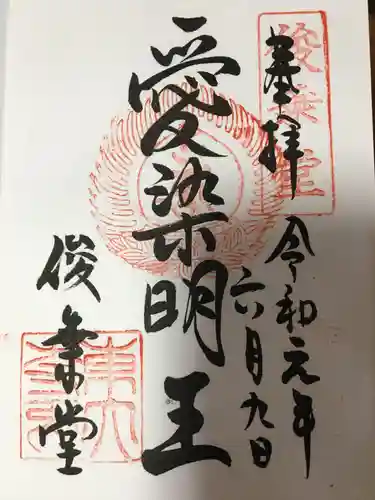 奉拝
俊乗堂
令和元年
六月九日
愛染明王
俊乗堂